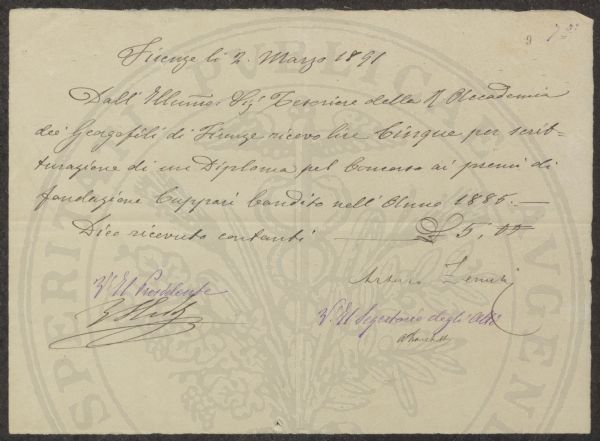 9
Firenze li 2. Marzo 1891
Dall' Illumo. Sigr. Tesoriere della R. Accademia
dei Georgofili di Firenze ricevo lire Cinque per scrit-
turazione di un Diploma pel Concorso ai premi di
fondazione Cuppari bandito nell'Anno 1885.—
Dico ricevuto contanti — £ 5,00
Arturo
Vo. Il Presidente
Vo. Il Segretario degli Atti
PUBLICAE
PROSPERITATI
AUGENDAE